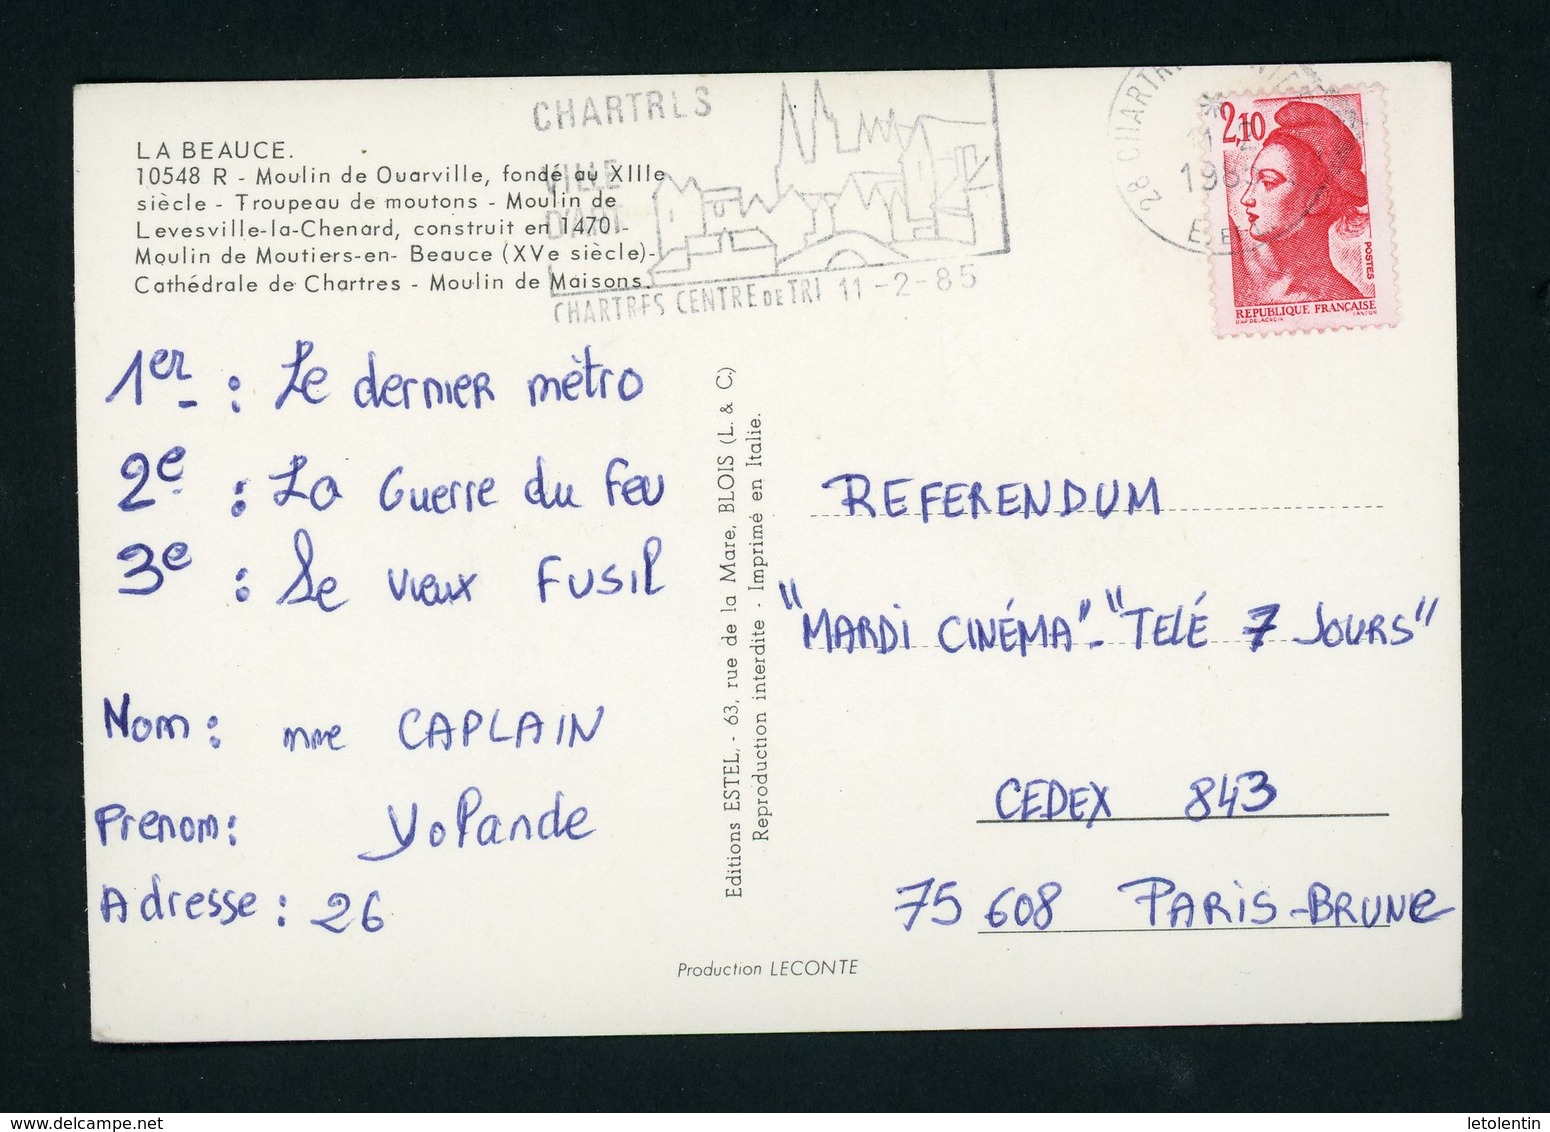 LA BEAUCE.
10548 R - Moulin de Ouarville, fondé au XIIIe
siècle - Troupeau de moutons - Moulin de
Levesville-la-Chenard, construit en 1470 -
Moulin de Moutiers-en- Beauce (XVe siècle)-
Cathédrale de Chartres - Moulin de Maisons.
CHARTRES
VILLE
D'ART
CHARTRES CENTRE DE TRI 11-2-85
28 CHARTRES
1985
2,10
POSTES
REPUBLIQUE FRANÇAISE
1er : Le dernier mètro
2e : La Guerre du feu
3e : Le vieux FUSIL
Nom : mme CAPLAIN
Prenom : Yolande
Adresse : 26
Editions ESTEL, - 63, rue de la Mare, BLOIS (L. & C.)
Reproduction interdite - Imprimé en Italie.
REFERENDUM
"MARDI CINÉMA" - "TELÉ 7 JOURS"
CEDEX 843
75 608 PARIS-BRUNE
Production LECONTE
letolentin